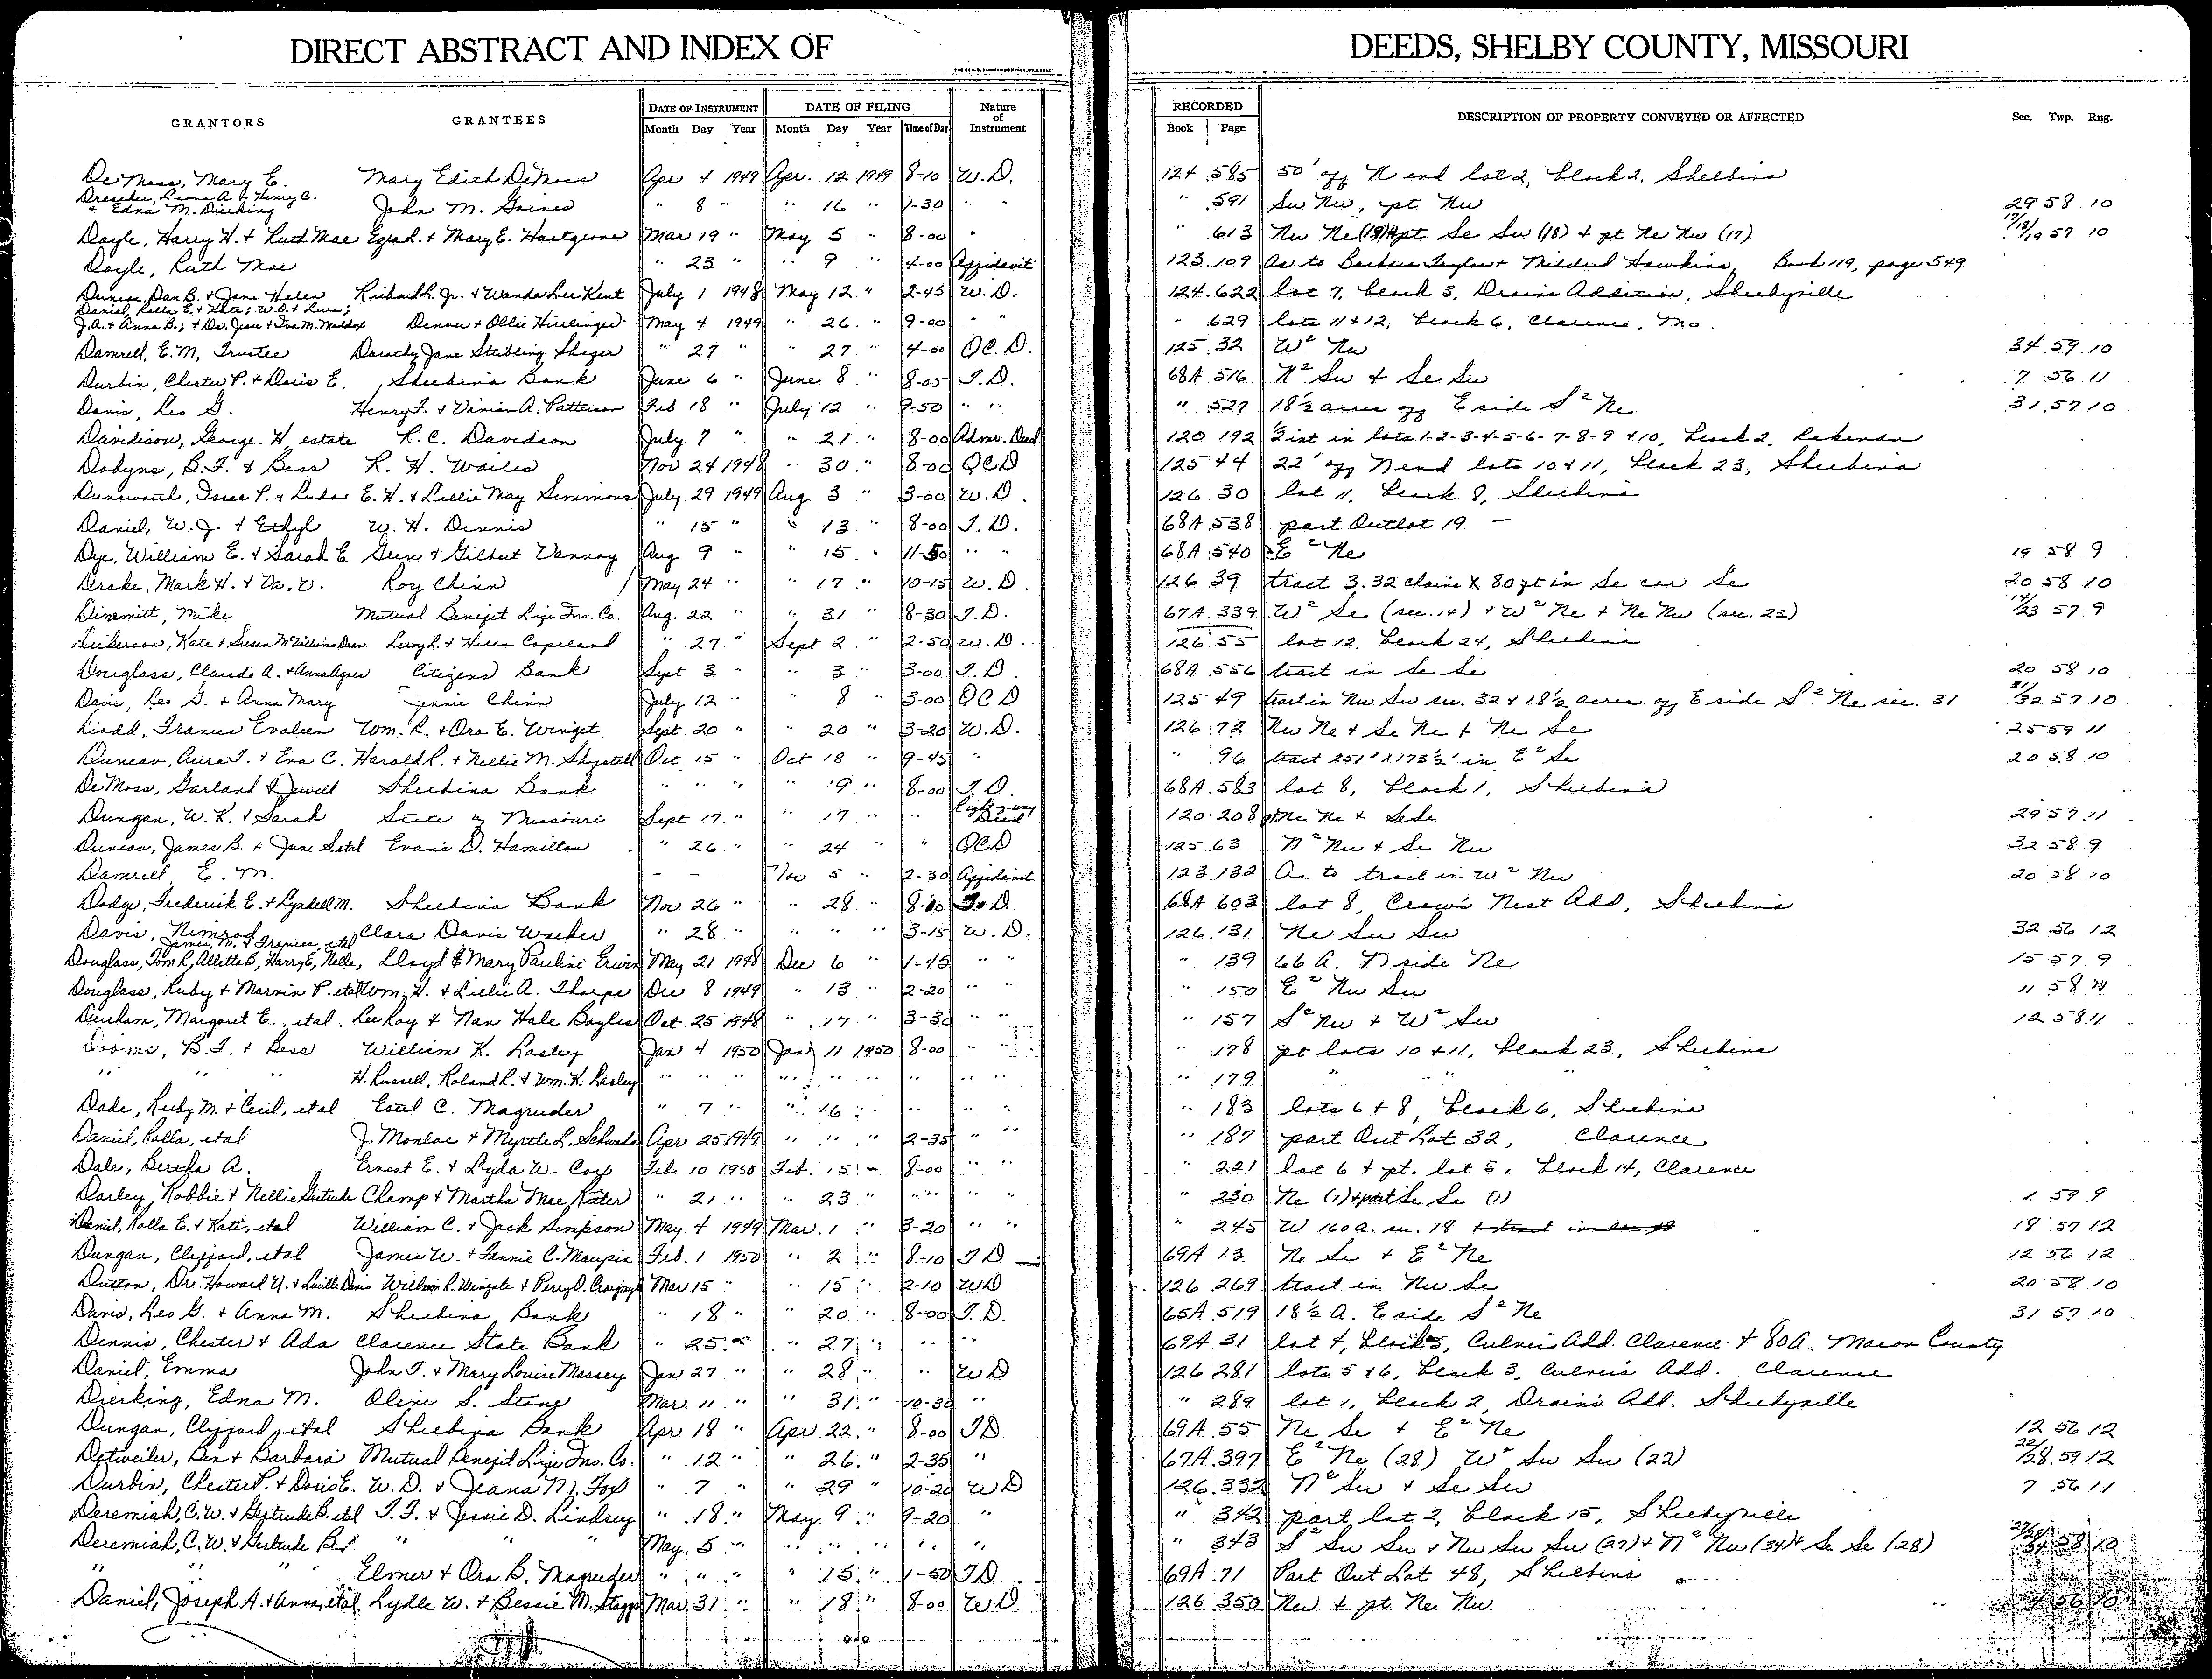 DIRECT ABSTRACT AND INDEX OF DEEDS, SHELBY COUNTY, MISSOURI
GRANTORS GRANTEES DATE OF INSTRUMENT DATE OF FILING Nature of Instrument RECORDED DESCRIPTION OF PROPERTY CONVEYED OR AFFECTED Sec. Twp. Rng.
Month Day Year Month Day Year Time of Day Book Page
DeMoss, Mary E. Mary Edith DeMoss Apr 4 1949 Apr. 12 1949 8-10 W.D. 124 585 50' off N end lot 2, block 2, Shelbina
Drescher, Leona A & Henry C. & Edna M. Dierking John M. Gaines " 8 " " 16 " 1-30 " " " 591 Sw Nw, pt Nw 29 58 10
Doyle, Harry H. & Ruth Mae Ezra L. & Mary E. Mar 19 " May 5 " 8-00 " " 613 Nw Ne (19) & pt Se Sw (18) & pt Ne Nw (17) 17/18/19 57 10
Doyle, Ruth Mae " 23 " " 9 " 4-00 Affidavit 123 109 As to Barbara Taylor & Mildred Hawkins, Book 119, page 549
Duncan, Dan B. & Jane Helen Richard L. Jr. & Wanda Lee Kent July 1 1948 May 12 " 2-45 W.D. 124 622 lot 7, block 3, Drains Addition, Shelbyville
Daniel, Rolla E. & Kate; W.O. & Lura;
J.A. & Anna B.; & Dr. Jesse & Iva M. Maddox Denver & Ollie May 4 1949 " 26 " 9-00 " " " 629 lots 11 & 12, block 6, Clarence, Mo.
Damrell, E.M, Trustee Dorothy Jane Stribling " 27 " " 27 " 4-00 QC.D. 125 32 W² Nw 34 59 10
Durbin, Chester P. & Doris E. Shelbina Bank June 6 " June 8 " 8-05 T.D. 68A 516 N² Sw & Se Sw 7 56 11
Davis, Leo G. Henry F. & Vivian A. Patterson Feb 18 " July 12 " 9-50 " " " 527 18½ acres off E side S² Ne 31 57 10
Davidison, George. H estate R.C. Davidson July 7 " " 21 " 8-00 Admr. Deed 120 192 ½ int in lots 1-2-3-4-5-6-7-8-9 & 10, block 2, Lakenan
Dobyns, B.F. & Bess R. H. Wailes Nov 24 1948 " 30 " 8-00 QCD 125 44 22' off N end lots 10 & 11, block 23, Shelbina
Dunsworth, & E. H. & Lillie May Simmons July 29 1949 Aug 3 " 3-00 W.D. 126 30 lot 11, block 8, Shelbina
Daniel, W.J. & Ethyl W. H. Dennis " 15 " " 13 " 8-00 T.D. 68A 538 part Outlot 19 —
Dye, William E. & Sarah E. Glen & Gilbert Vannoy Aug 9 " " 15 " 11-50 " " 68A 540 E² Ne 19 58 9
Drake, Mark H. & Va. V. Roy Chinn May 24 " " 17 " 10-15 W.D. 126 39 tract 3.32 chains X 80 ft in Se cor Se 20 58 10
Dimmitt, Mike Mutual Benefit Life Ins. Co. Aug. 22 " " 31 " 8-30 T.D. 67A 339 W² Se (sec. 14) & W² Ne & Ne Nw (sec. 23) 14/23 57 9
Dickerson, Kate & Susan McWilliams Dean Leroy L. & Helen Copeland " 27 " Sept 2 " 2-50 W.D. 126 55 lot 12, block 24, Shelbina
Douglass, Claude A. & Anna Agnes Citizens Bank Sept 3 " " 3 " 3-00 T.D. 68A 556 tract in Se Se 20 58 10
Davis, Leo G. & Anna Mary Jennie Chinn July 12 " " 8 " 3-00 QCD 125 49 tract in Nw Sw sec. 32 & 18½ acres off E side S² Ne sec. 31 31/32 57 10
Dodd, Frances Evaleen Wm. R. & Ora E. Winget Sept. 20 " " 20 " 3-20 W.D. 126 72 Nw Ne & Se Ne & Ne Se 25 59 11
Duncan, Aura T. & Eva C. Harold R. & Nellie M. Oct 15 " Oct 18 " 9-45 " " 96 tract 251' X 173½' in E² Se 20 58 10
DeMoss, Garland & Jewell Shelbina Bank " " " " 19 " 8-00 T.D. 68A 583 lot 8, block 1, Shelbina
Dungan, W.K. & Sarah State of Missouri Sept 17 " " 17 " " Right-of-way Deed 120 208 pt Ne Ne & SeSe 29 57 11
Duncan, James B. & June S. etal Evans D. Hamilton " 26 " " 24 " " QCD 125 63 N² Nw & Se Nw 32 58 9
Damrell, E.M. — — Nov 5 " 2-30 Affidavit 123 132 As to tract in W² Nw 20 58 10
Dodge, Frederick E. & Lyndell M. Shelbina Bank Nov 26 " " 28 " 8-10 T.D. 68A 603 lot 8, Crow's Nest Add, Shelbina
Davis, Nimrod Clara Davis Walker " 28 " " " " 3-15 W.D. 126 131 Ne Sw Sw 32 56 12
James M. & Frances, etal
Douglass, Tom R, Alletta B, Harry E, Nelle, Lloyd & Mary Pauline Erwin May 21 1948 Dec 6 " 1-45 " " " 139 66 A. N side Ne 15 57 9
Douglass, Ruby & Marvin P. etal Wm. H. & Lillie A. Tharpe Dec 8 1949 " 13 " 2-20 " " " 150 E² Nw Sw 11 58
Durham, Margaret E., etal. Lee Roy & Nan Hale Bayles Oct 25 1948 " 17 " 3-30 " " " 157 S² Nw & W² Sw 12 58 11
B.F. & Bess William K. Lasley Jan 4 1950 Jan 11 1950 8-00 " " " 178 pt lots 10 & 11, block 23, Shelbina
" " " H. Russell, Roland R. & Wm. K. Lasley " " " " " " " " " " 179 " " " " "
Dade, Ruby M. & Cecil, etal Estel C. Magruder " 7 " " 16 " " " " " 183 lots 6 & 8, block 6, Shelbina
Daniel, Rolla, etal J. Monroe & Myrtle L. Apr 25 1949 " " " 2-35 " " " 187 part Out Lot 32, Clarence
Dale, Bertha A. Ernest E. & Lyda W. Cox Feb 10 1950 Feb. 15 " 8-00 " " " 221 lot 6 & pt. lot 5, block 14, Clarence
Darley, Robbie & Nellie Gertrude Champ & Martha Mae Kater " 21 " " 23 " " " " " 230 Ne (1) & part Se Se (1) 1 59 9
Daniel, Rolla E. & Kate, etal William C. & Jack Simpson May 4 1949 Mar. 1 " 3-20 " " " 245 W 160 A. sec. 18 & tract in sec. 18 57 12
Dungan, Clifford, etal James W. & Fannie C. Maupin Feb. 1 1950 " 2 " 8-10 TD 69A 13 Ne Se & E² Ne 12 56 12
Dutton, Dr. Howard U. & Lucille Davis William R. Wingate & Perry D. Mar 15 " " 15 " 2-10 WD 126 269 tract in Nw Se 20 58 10
Davis, Leo G. & Anna M. Shelbina Bank " 18 " " 20 " 8-00 T.D. 65A 519 18½ A. E side S² Ne 31 57 10
Dennis, Chester & Ada Clarence State Bank " 25 " " 27 " " " 69A 31 lot 4, block 5, Culver's Add. Clarence & 80 A. Macon County
Daniel, Emma John T. & Mary Louise Massey Jan 27 " " 28 " " WD 126 281 lots 5 & 6, block 3, Culver's Add. Clarence
Dierking, Edna M. Olive S. Stang Mar. 11 " " 31 " 10-30 " " 289 lot 1, block 2, Drain's Add. Shelbyville
Dungan, Clifford, etal Shelbina Bank Apr. 18 " Apr 22 " 8-00 TD 69A 55 Ne Se & E² Ne 12 56 12
Detweiler, Ben & Barbara Mutual Benefit Life Ins. Co. " 12 " " 26 " 2-35 " 67A 397 E² Ne (28) W² Sw Sw (22) 22/28 59 12
Durbin, Chester P. & Doris E. W.D. & Jeana M. Fox " 7 " " 29 " 10-20 WD 126 332 N² Sw & Se Sw 7 56 11
Deremiah, C.W. & Gertrude B. etal T.F. & Jessie D. Lindsey " 18 " May 9 " 9-20 " " 342 part lot 2, block 15, Shelbyville
Deremiah, C.W. & Gertrude B. " " " May 5 " " " " " " " 343 S² Sw Sw & Nw Sw Sw (27) & N² Nw (34) & Se Se (28) 27/28/34 58 10
" " " Elmer & Ora B. Magruder " " " " 15 " 1-50 TD 69A 71 Part Out Lot 48, Shelbina
Daniel, Joseph A. & Anna, etal Lydle W. & Bessie M. Staggs Mar. 31 " " 18 " 8-00 WD 126 350 Nw & pt Ne Nw 4 56 10